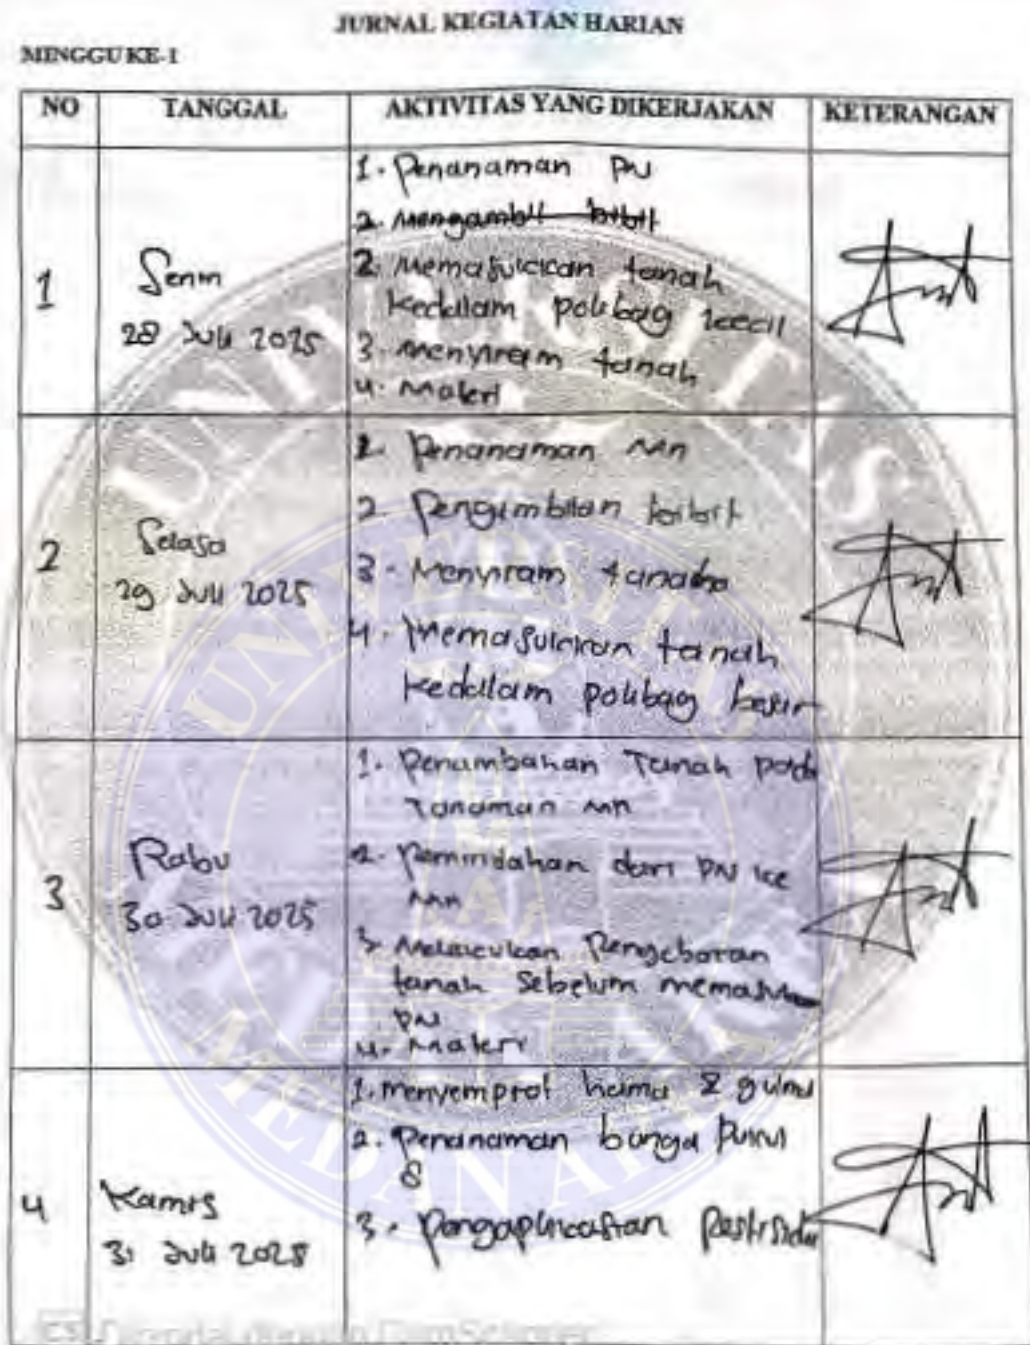 JURNAL KEGIATAN HARIAN
MINGGU KE-1
NO TANGGAL AKTIVITAS YANG DIKERJAKAN KETERANGAN
1 Senin
28 Juli 2025
1. Penanaman PN
2. Mengambil bibit
2. Memasukkan tanah
Kedalam polibag kecil
3. Menyiram tanah
4. Materi
2 Selasa
29 Juli 2025
1. Penanaman MN
2. Pengambilan bibit
3. Menyiram tanah
4. Memasukkan tanah
Kedalam polibag besar
3 Rabu
30 Juli 2025
1. Penambahan Tanah pada
Tanaman MN
2. Pemindahan dari PN ke
MN
3. Melakukan Pengeboran
tanah Sebelum
PN
4. Materi
4 Kamis
31 Juli 2025
1. Menyemprot hama & gulma
2. Penanaman bunga Pukul
8
3. Pengaplikasian Pestisida
UNIVERSITAS
UNIVERSITAS
MEDAN AREA